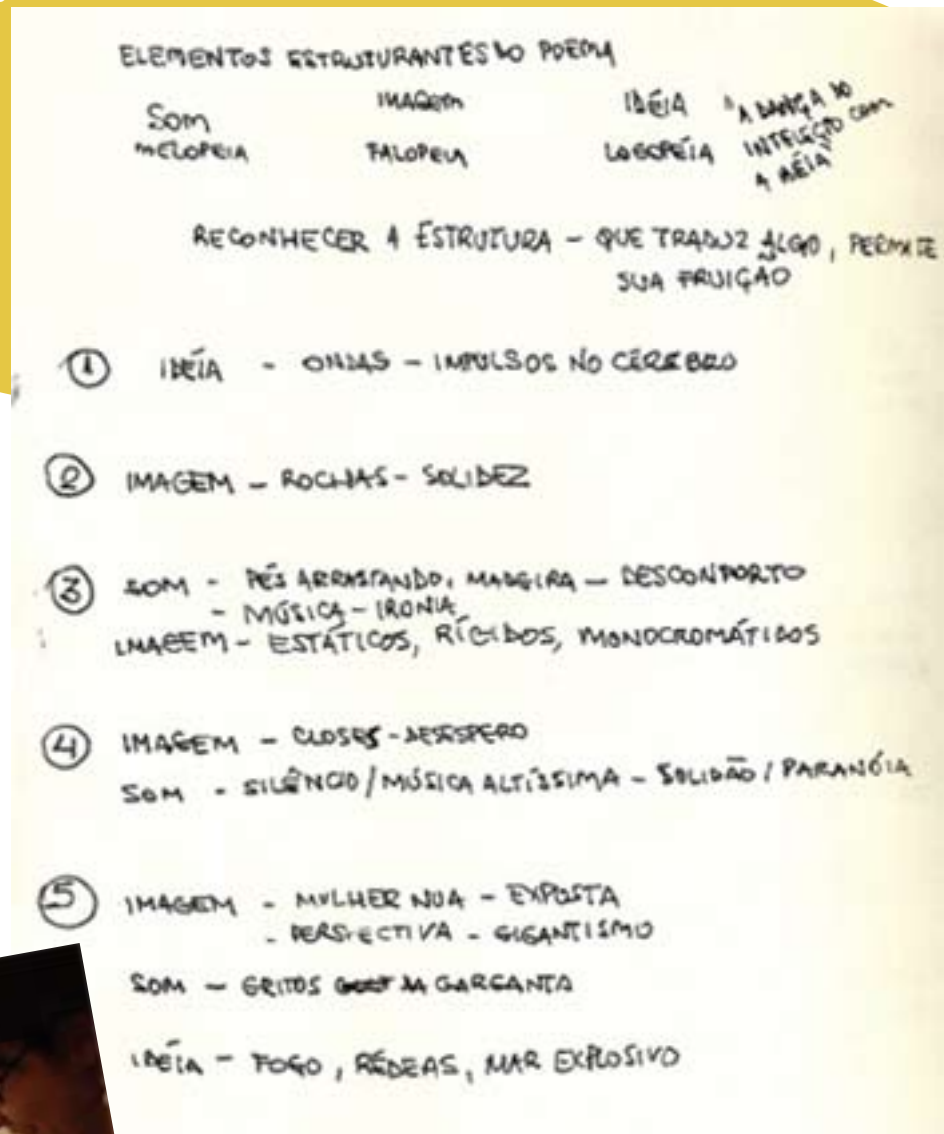 ELEMENTOS ESTRUTURANTES DO POEMA
SOM IMAGEM IDÉIA "A DANÇA DO
MELOPEIA FALOPEIA LOGOPÉIA INTELECTO COM
A IDÉIA"
RECONHECER A ESTRUTURA – QUE TRADUZ ALGO, PERMITE
SUA FRUIÇÃO
1 IDÉIA - ONDAS - IMPULSOS NO CÉREBRO
2 IMAGEM - ROCHAS - SOLIDEZ
3 SOM - PÉS ARRASTANDO, MADEIRA - DESCONFORTO
- MÚSICA - IRONIA
IMAGEM - ESTÁTICOS, RÍGIDOS, MONOCROMÁTICOS
4 IMAGEM - CLOSES - DESESPERO
SOM - SILÊNCIO / MÚSICA ALTÍSSIMA - SOLIDÃO / PARANÓIA
5 IMAGEM - MULHER NUA - EXPOSTA
- PERSPECTIVA - GIGANTISMO
SOM - GRITOS NA GARGANTA
IDÉIA - FOGO, RÉDEAS, MAR EXPLOSIVO